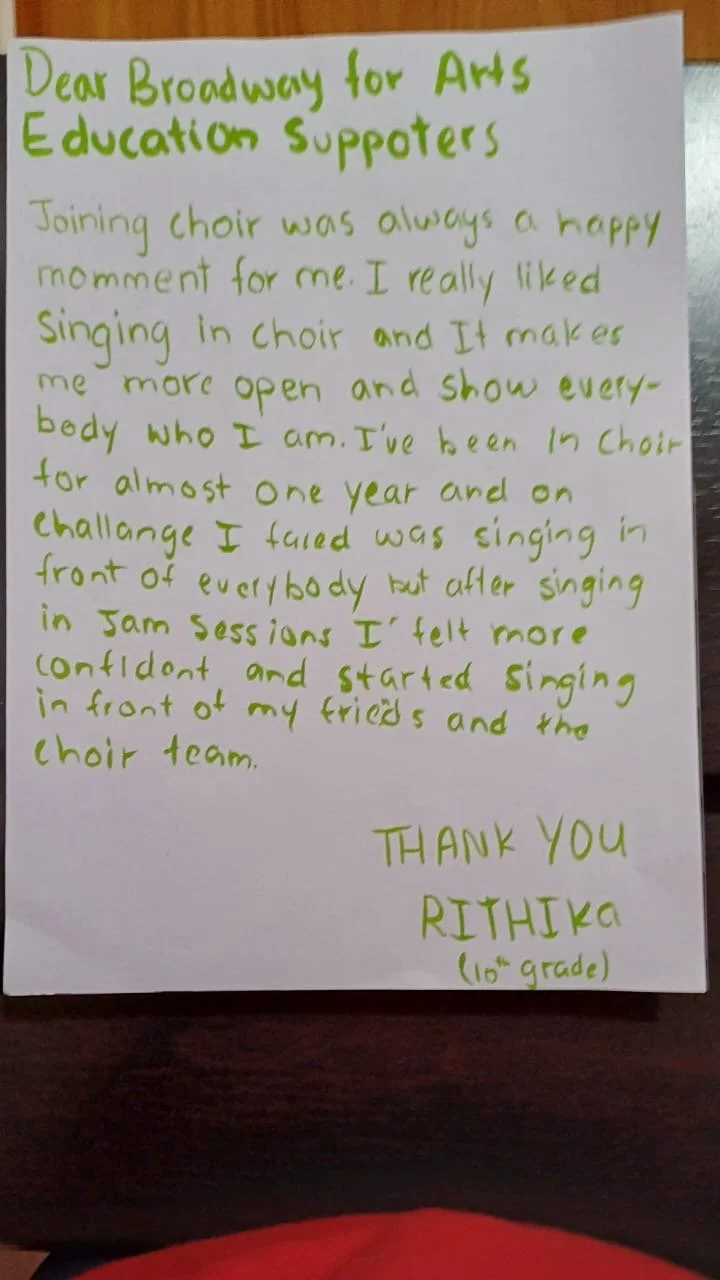 Dear Broadway for Arts
Education Suppoters
Joining choir was always a happy
momment for me. I really liked
Singing in choir and It makes
me more open and show every-
body who I am. I've been in choir
for almost one year and on
challange I faced was singing in
front of everybody but after singing
in Jam Sessions I' felt more
confidont and started singing
in front of my frieds and the
choir team.
THANK YOU
RITHIKa
(10th grade)